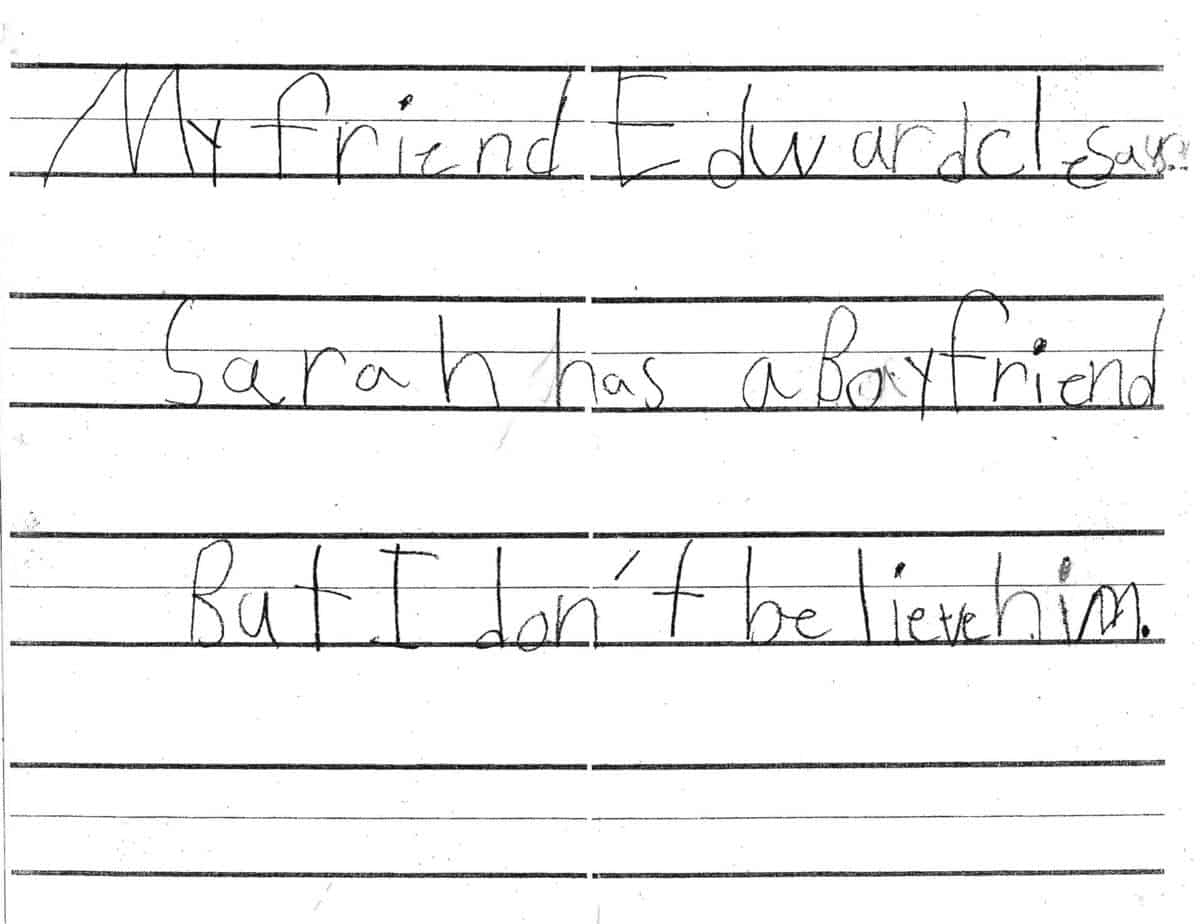 My friend Edwardcl says:
Sarah has a Boyfriend
But I don't believe him.